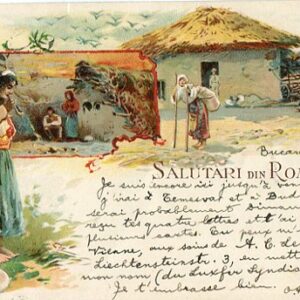 Bucar
SALUTARI DIN RO
Je suis encore ici jusqu'à
j'irai à Temesvar et à Bud
serai probablement
reçu tes quatre lettres et
plusieurs cartes. Tu peux m'
Vienne, aux soins de A. C. Les
Liechtensteinstr. 3, en mett
mon nom (du Luxfer Syndic
Je t'embrasse bien.